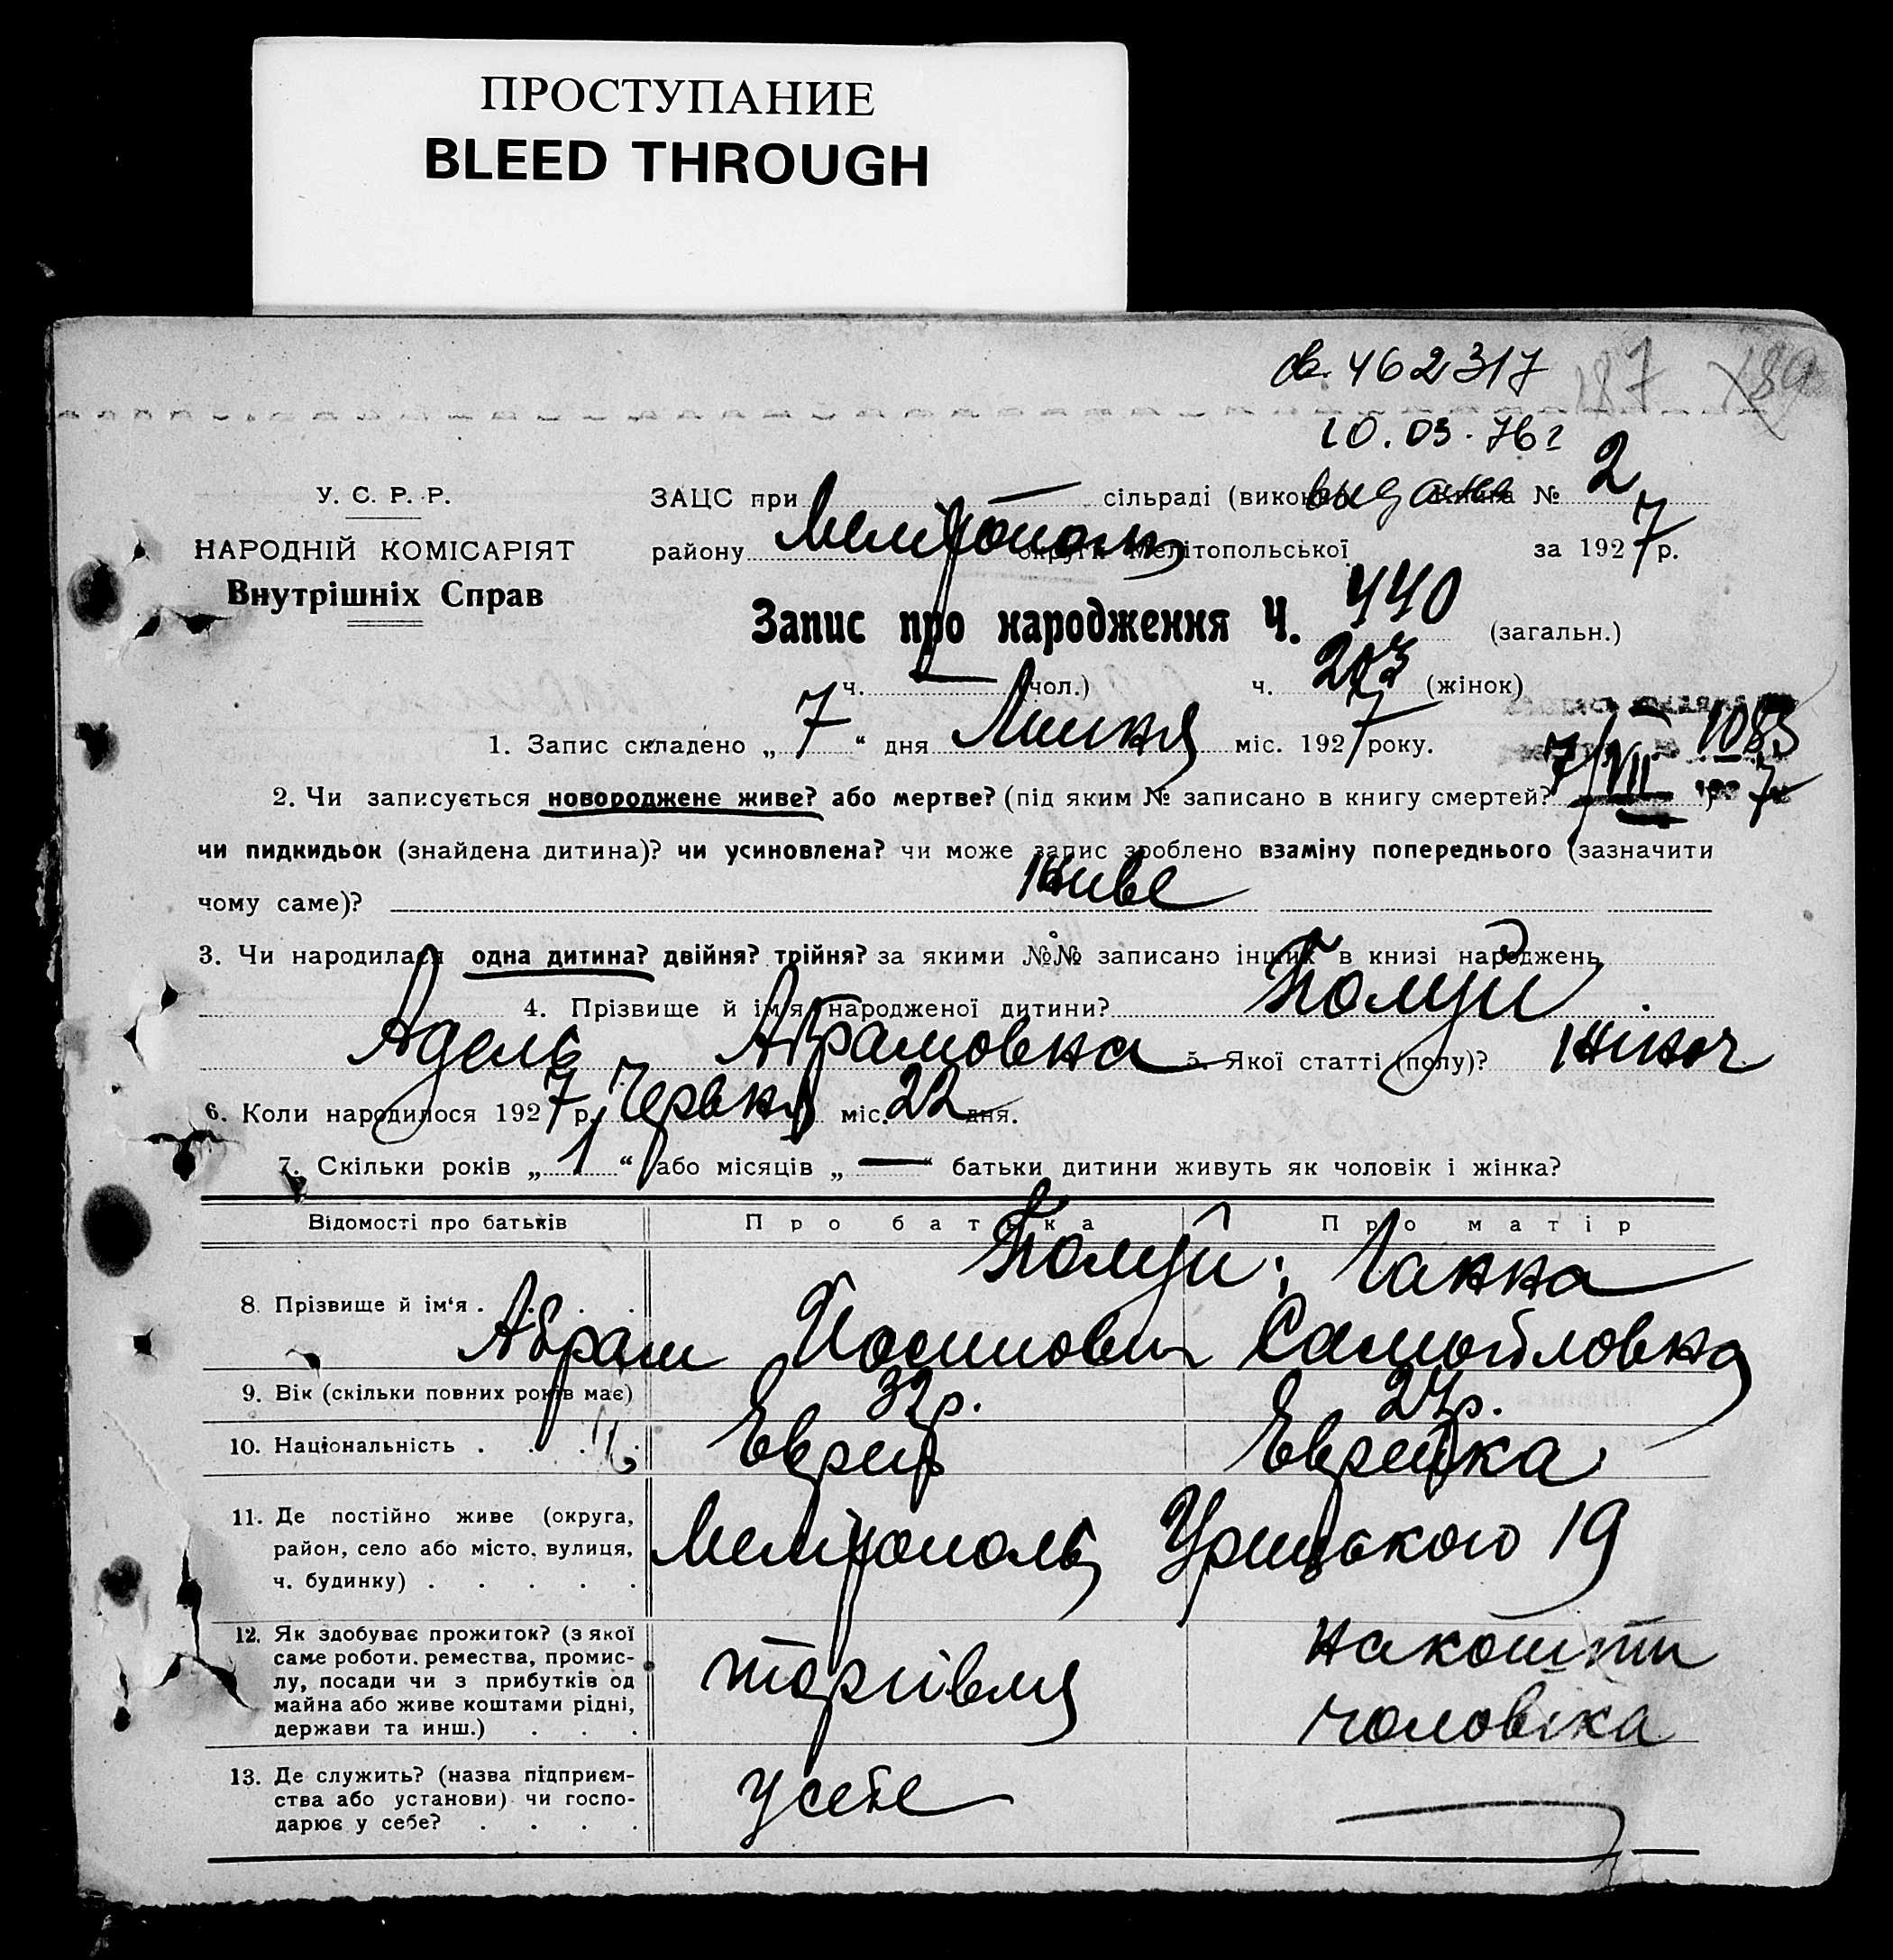 ПРОСТУПАНИЕ
BLEED THROUGH
св. 462317 187 189
10.03.76г
У. С. Р. Р.
ЗАЦС при сільраді (викон видано Книга № 2
НАРОДНІЙ КОМІСАРІЯТ
району Мелітополь округи Мелітопольської за 1927 р.
Внутрішніх Справ
Запис про народження Ч. 440 (загальн.)
ч. — (чол.) ч. 203 (жінок)
1. Запис складено „ 7 “ дня Липня міс. 1927 року.
7/VII 1083
2. Чи записується новороджене живе? або мертве? (під яким № записано в книгу смертей? ) 7
чи пидкидьок (знайдена дитина)? чи усиновлена? чи може запис зроблено взаміну попереднього (зазначити
чому саме)? Живе
3. Чи народилася одна дитина? двійня? трійня? за якими №№ записано інших в книзі народжень
4. Прізвище й ім'я народженої дитини?
Адель Абрамовна 5. Якої статті (полу)? Жіноч.
6. Коли народилося 1927 р. Червня міс. 22 дня.
7. Скільки років „ 1 “ або місяців „ — “ батьки дитини живуть як чоловік і жінка?
Відомості про батьків Про батька Про матір
Ганна
8. Прізвище й ім‘я . . . .
Абрам Йосипович Самойловна
9. Вік (скільки повних років має) 32р. 27р.
10. Національність . . . . Еврей Еврейка
11. Де постійно живе (округа,
район, село або місто, вулиця,
ч. будинку) . . . . .
Мелітополь Урицького 19
12. Як здобуває прожиток? (з якої
саме роботи, ремества, промис-
лу, посади чи з прибутків од
майна або живе коштами рідні,
держави та инш.) . . .
торгівля
на кошти
чоловіка
13. Де служить? (назва підприєм-
ства або установи) чи госпо-
дарює у себе? . . . .
у себе